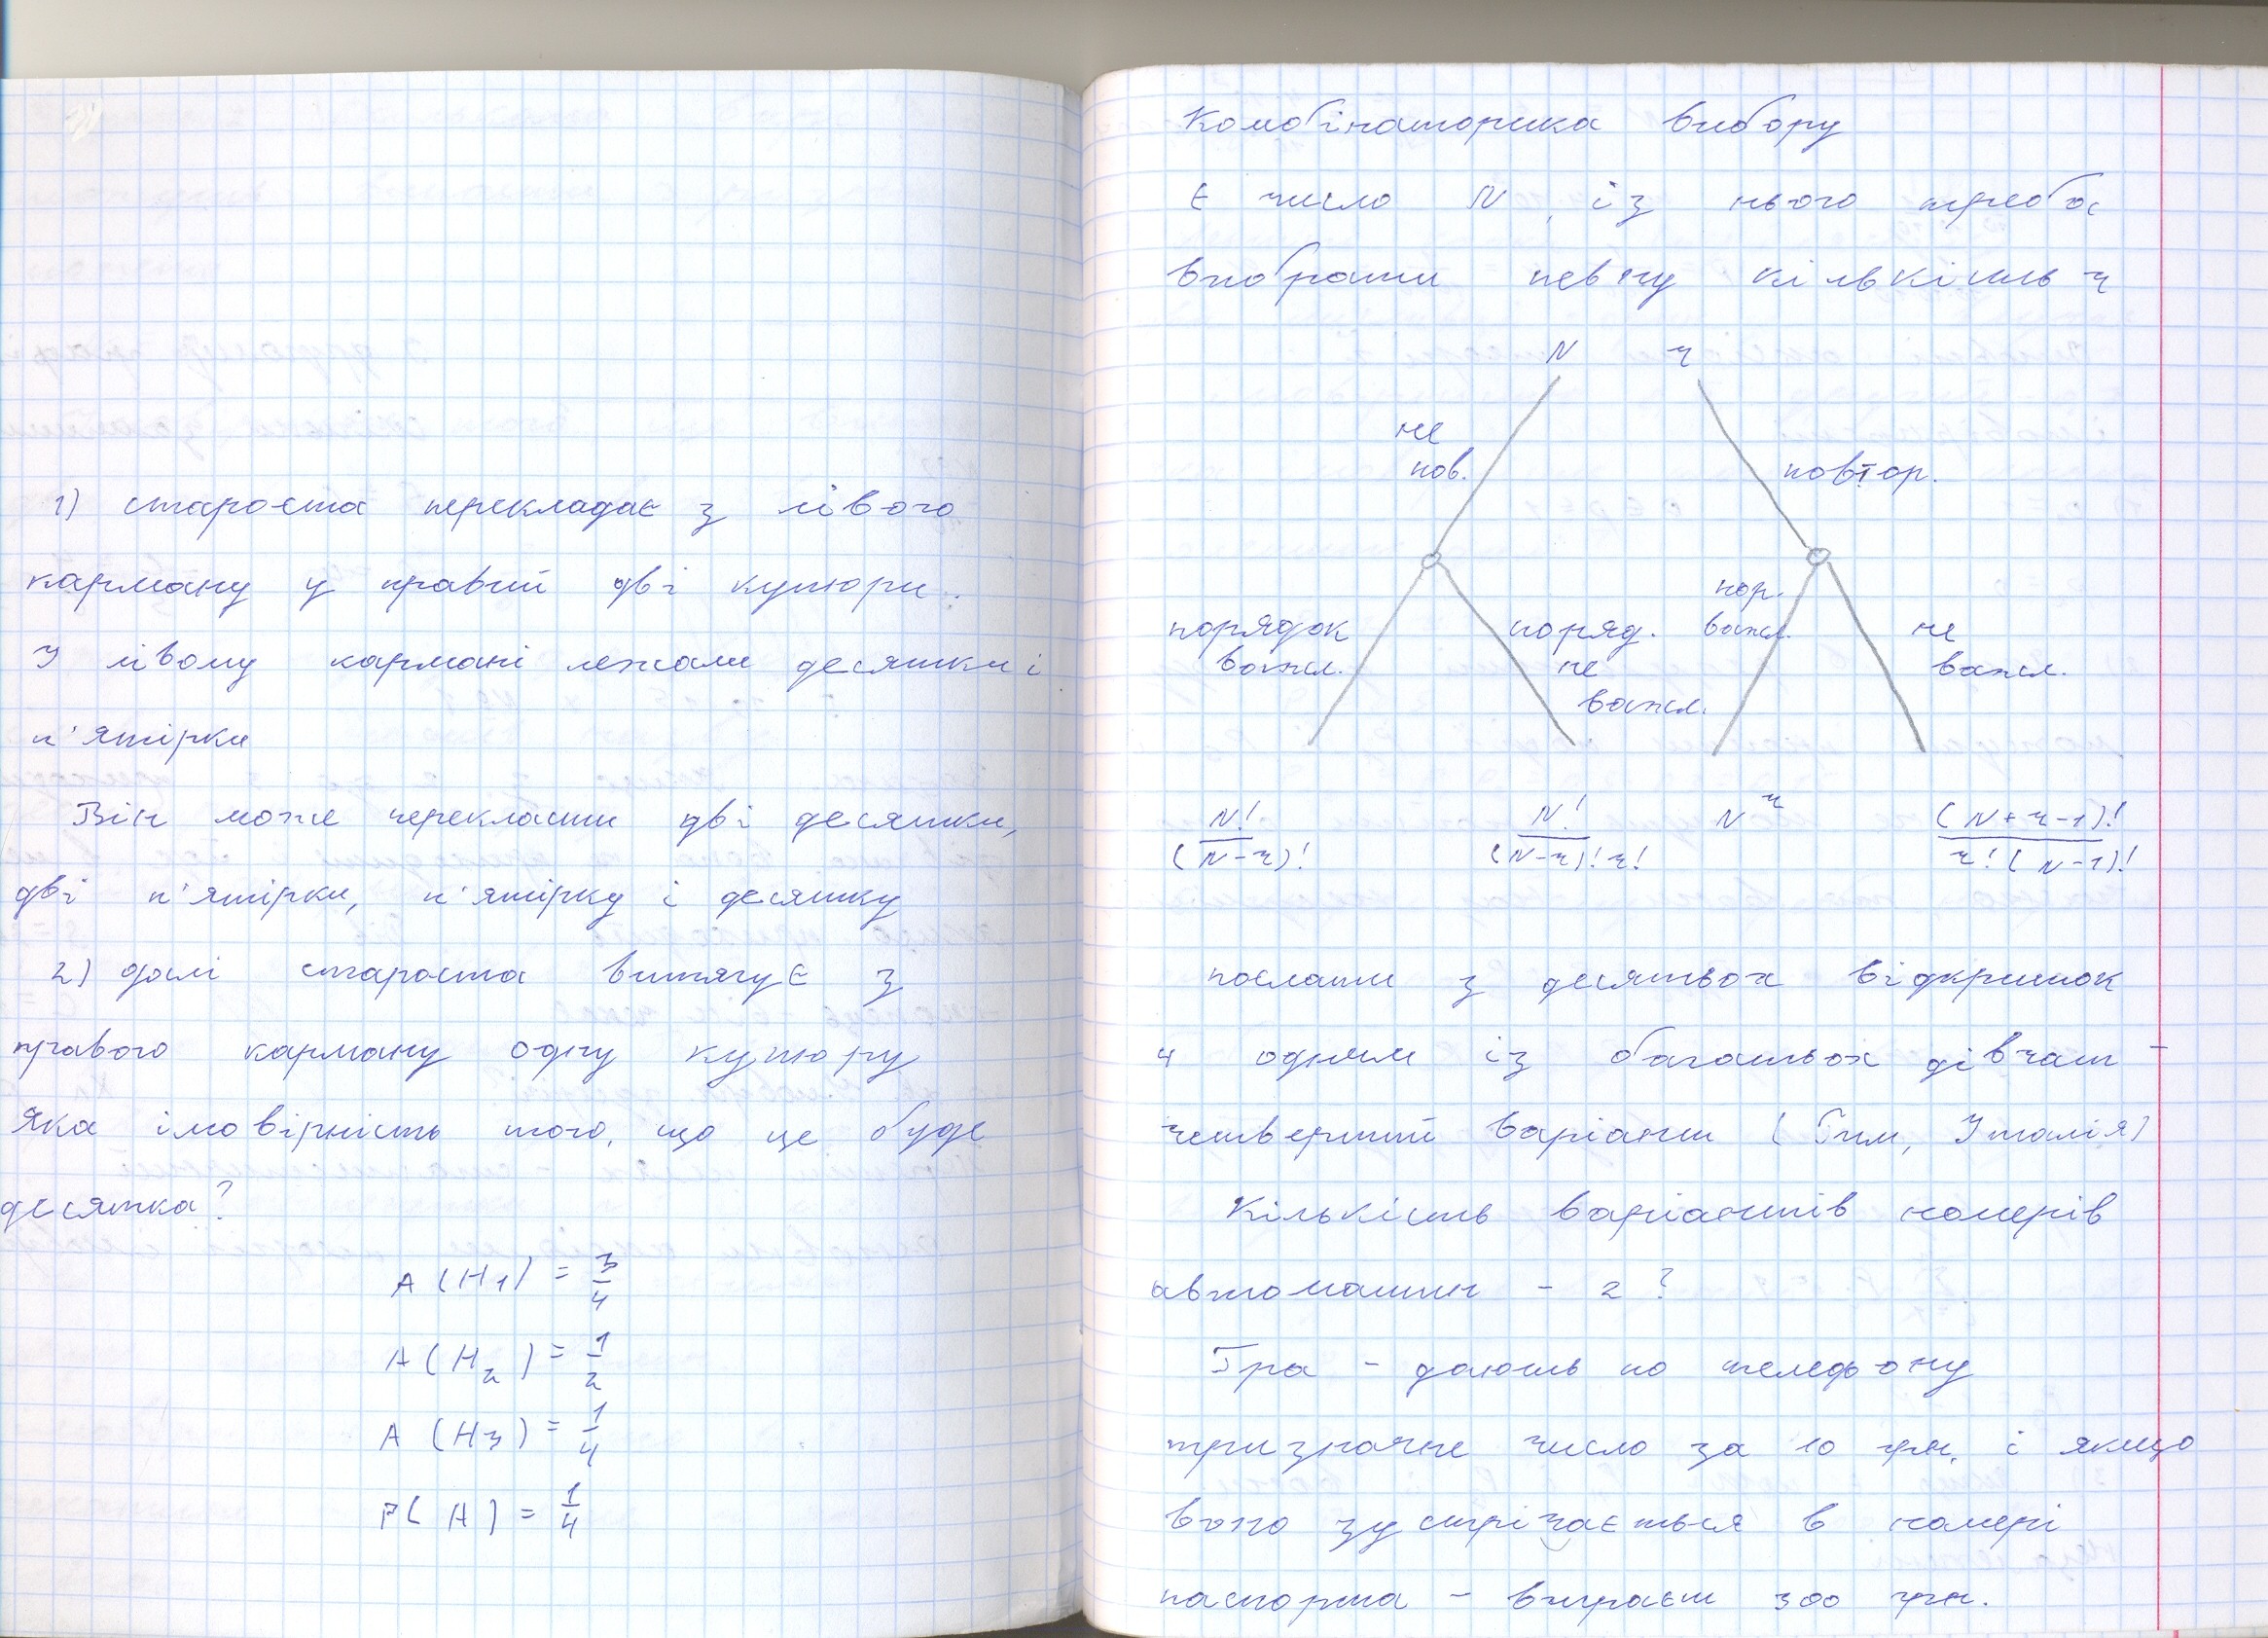 1) староста перекладає з лівого
карману у правий дві купюри.
У лівому кармані лежали десятки і
п'ятірки
Він може перекласти дві десятки,
дві п'ятірки, п'ятірку і десятку
2) далі староста витягує з
правого карману одну купюру
Яка імовірність того, що це буде
десятка?
A(H₁) = 3/4
A(H₂) = 1/2
A(H₃) = 1/4
P(A) = 1/4
Комбінаторика вибору
Є число N, із нього треба
вибрати певну кількість r
N r
не
пов.
повтор.
порядок
важл.
поряд.
не
важл.
пор.
важл.
не
важл.
N!/(N-r)!
N!/(N-r)!r!
N^r
(N+r-1)!/r!(N-1)!
послати з десятьох відкриток
4 одним із багатьох дівчат -
четвертий варіант (Гим, Італія)
Кількість варіантів номерів
автомашин - 2?
Гра - дають по телефону
тризначне число за 10 грн. і якщо
воно зустрічається в номері
паспорта - виграєш 300 грн.